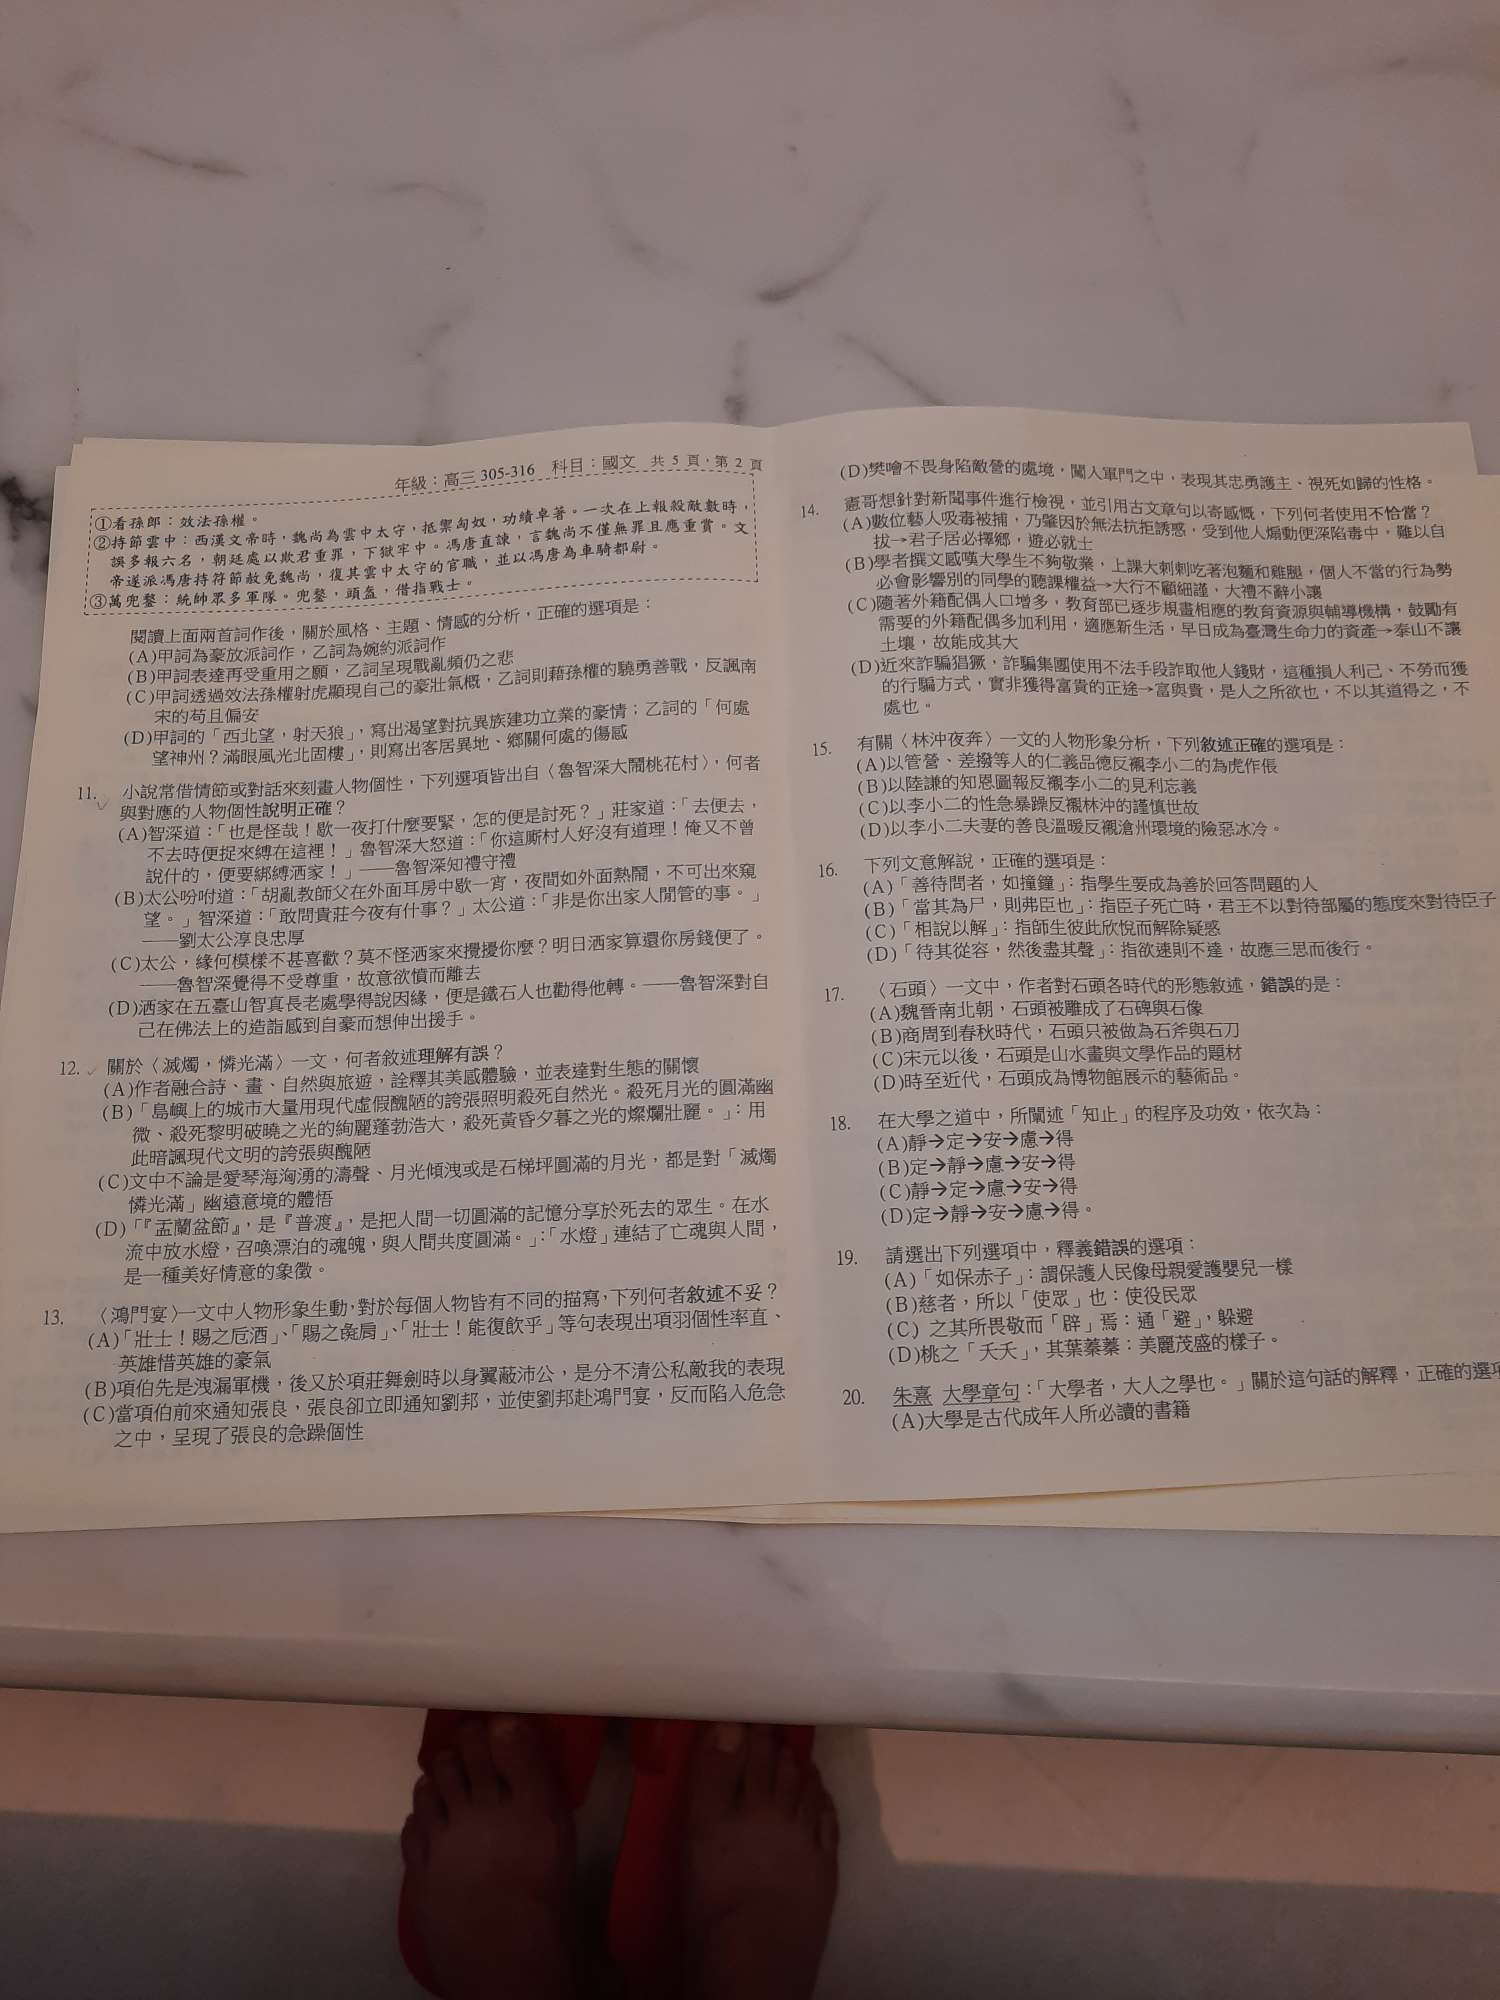 年級：高三 305-316　科目：國文　共 5 頁，第 2 頁
①看孫郎：效法孫權。
②持節雲中：西漢文帝時，魏尚為雲中太守，抵禦匈奴，功績卓著。一次在上報殺敵數時，
誤多報六名，朝廷處以欺君重罪，下獄牢中。馮唐直諫，言魏尚不僅無罪且應重賞。文
帝遂派馮唐持符節赦免魏尚，復其雲中太守的官職，並以馮唐為車騎都尉。
③萬兜鍪：統帥眾多軍隊。兜鍪，頭盔，借指戰士。
閱讀上面兩首詞作後，關於風格、主題、情感的分析，正確的選項是：
(A)甲詞為豪放派詞作，乙詞為婉約派詞作
(B)甲詞表達再受重用之願，乙詞呈現戰亂頻仍之悲
(C)甲詞透過效法孫權射虎顯現自己的豪壯氣概，乙詞則藉孫權的驍勇善戰，反諷南
宋的苟且偏安
(D)甲詞的「西北望，射天狼」，寫出渴望對抗異族建功立業的豪情；乙詞的「何處
望神州？滿眼風光北固樓」，則寫出客居異地、鄉關何處的傷感
11. 小說常借情節或對話來刻畫人物個性，下列選項皆出自〈魯智深大鬧桃花村〉，何者
與對應的人物個性說明正確？
(A)智深道：「也是怪哉！歇一夜打什麼要緊，怎的便是討死？」莊家道：「去便去，
不去時便捉來縛在這裡！」魯智深大怒道：「你這廝村人好沒有道理！俺又不曾
說什的，便要綁縛洒家！」——魯智深知禮守禮
(B)太公吩咐道：「胡亂教師父在外面耳房中歇一宵，夜間如外面熱鬧，不可出來窺
望。」智深道：「敢問貴莊今夜有什事？」太公道：「非是你出家人閒管的事。」
——劉太公淳良忠厚
(C)太公，緣何模樣不甚喜歡？莫不怪洒家來攪擾你麼？明日洒家算還你房錢便了。
——魯智深覺得不受尊重，故意欲憤而離去
(D)洒家在五臺山智真長老處學得說因緣，便是鐵石人也勸得他轉。——魯智深對自
己在佛法上的造詣感到自豪而想伸出援手。
12. 關於〈滅燭，憐光滿〉一文，何者敘述理解有誤？
(A)作者融合詩、畫、自然與旅遊，詮釋其美感體驗，並表達對生態的關懷
(B)「島嶼上的城市大量用現代虛假醜陋的誇張照明殺死自然光。殺死月光的圓滿幽
微、殺死黎明破曉之光的絢麗蓬勃浩大，殺死黃昏夕暮之光的燦爛壯麗。」：用
此暗諷現代文明的誇張與醜陋
(C)文中不論是愛琴海洶湧的濤聲、月光傾洩或是石梯坪圓滿的月光，都是對「滅燭
憐光滿」幽遠意境的體悟
(D)「『盂蘭盆節』，是『普渡』，是把人間一切圓滿的記憶分享於死去的眾生。在水
流中放水燈，召喚漂泊的魂魄，與人間共度圓滿。」：「水燈」連結了亡魂與人間，
是一種美好情意的象徵。
13. 〈鴻門宴〉一文中人物形象生動，對於每個人物皆有不同的描寫，下列何者敘述不妥？
(A)「壯士！賜之卮酒」、「賜之彘肩」、「壯士！能復飲乎」等句表現出項羽個性率直、
英雄惜英雄的豪氣
(B)項伯先是洩漏軍機，後又於項莊舞劍時以身翼蔽沛公，是分不清公私敵我的表現
(C)當項伯前來通知張良，張良卻立即通知劉邦，並使劉邦赴鴻門宴，反而陷入危急
之中，呈現了張良的急躁個性
(D)樊噲不畏身陷敵營的處境，闖入軍門之中，表現其忠勇護主、視死如歸的性格。
14. 憲哥想針對新聞事件進行檢視，並引用古文章句以寄感慨，下列何者使用不恰當？
(A)數位藝人吸毒被捕，乃肇因於無法抗拒誘惑，受到他人煽動便深陷毒中，難以自
拔→君子居必擇鄉，遊必就士
(B)學者撰文感嘆大學生不夠敬業，上課大剌剌吃著泡麵和雞腿，個人不當的行為勢
必會影響別的同學的聽課權益→大行不顧細謹，大禮不辭小讓
(C)隨著外籍配偶人口增多，教育部已逐步規畫相應的教育資源與輔導機構，鼓勵有
需要的外籍配偶多加利用，適應新生活，早日成為臺灣生命力的資產→泰山不讓
土壤，故能成其大
(D)近來詐騙猖獗，詐騙集團使用不法手段詐取他人錢財，這種損人利己、不勞而獲
的行騙方式，實非獲得富貴的正途→富與貴，是人之所欲也，不以其道得之，不
處也。
15. 有關〈林沖夜奔〉一文的人物形象分析，下列敘述正確的選項是：
(A)以管營、差撥等人的仁義品德反襯李小二的為虎作倀
(B)以陸謙的知恩圖報反襯李小二的見利忘義
(C)以李小二的性急暴躁反襯林沖的謹慎世故
(D)以李小二夫妻的善良溫暖反襯滄州環境的險惡冰冷。
16. 下列文意解說，正確的選項是：
(A)「善待問者，如撞鐘」：指學生要成為善於回答問題的人
(B)「當其為尸，則弗臣也」：指臣子死亡時，君王不以對待部屬的態度來對待臣子
(C)「相說以解」：指師生彼此欣悅而解除疑惑
(D)「待其從容，然後盡其聲」：指欲速則不達，故應三思而後行。
17. 〈石頭〉一文中，作者對石頭各時代的形態敘述，錯誤的是：
(A)魏晉南北朝，石頭被雕成了石碑與石像
(B)商周到春秋時代，石頭只被做為石斧與石刀
(C)宋元以後，石頭是山水畫與文學作品的題材
(D)時至近代，石頭成為博物館展示的藝術品。
18. 在大學之道中，所闡述「知止」的程序及功效，依次為：
(A)靜→定→安→慮→得
(B)定→靜→慮→安→得
(C)靜→定→慮→安→得
(D)定→靜→安→慮→得。
19. 請選出下列選項中，釋義錯誤的選項：
(A)「如保赤子」：謂保護人民像母親愛護嬰兒一樣
(B)慈者，所以「使眾」也：使役民眾
(C) 之其所畏敬而「辟」焉：通「避」，躲避
(D)桃之「夭夭」，其葉蓁蓁：美麗茂盛的樣子。
20. 朱熹 大學章句：「大學者，大人之學也。」關於這句話的解釋，正確的選項
(A)大學是古代成年人所必讀的書籍